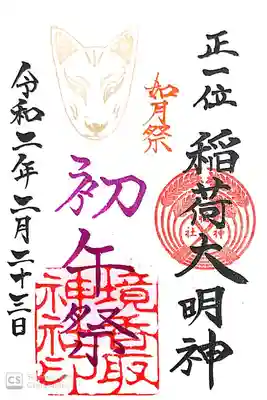 正一位 稲荷大明神
如月祭
初午祭
境香取神社印
令和二年二月二十三日
CS